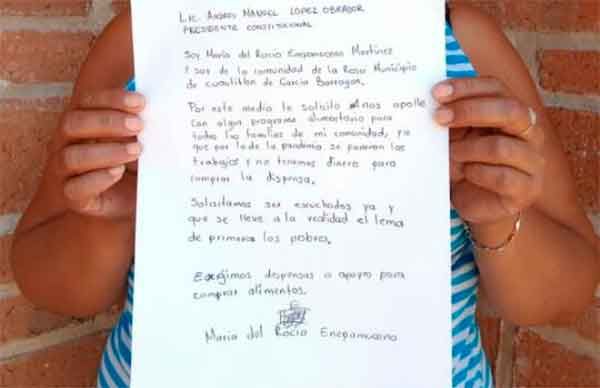 LIC. ANDRES MANUEL LOPEZ OBRADOR
PRESIDENTE CONSTITUCIONAL
Soy María del Rocio Enepomuceno Martínez
Y soy de la comunidad de la Rosa Municipio
de cuautitlan de García Barragan.
Por este medio le solicito Anos apolle
con algun programa alimentario para
todas las familias de mi comunidad, ya
que por lo de la pandemia, se pararon los
trabajos y no tenemos dinero para
comprar la dispensa.
Solicitamos ser escuchados ya y
que se lleve a la realidad el lema
de primero los pobres.
Exigimos despensas o apoyo para
comprar alimentos.
María del Rocio Enepomuceno